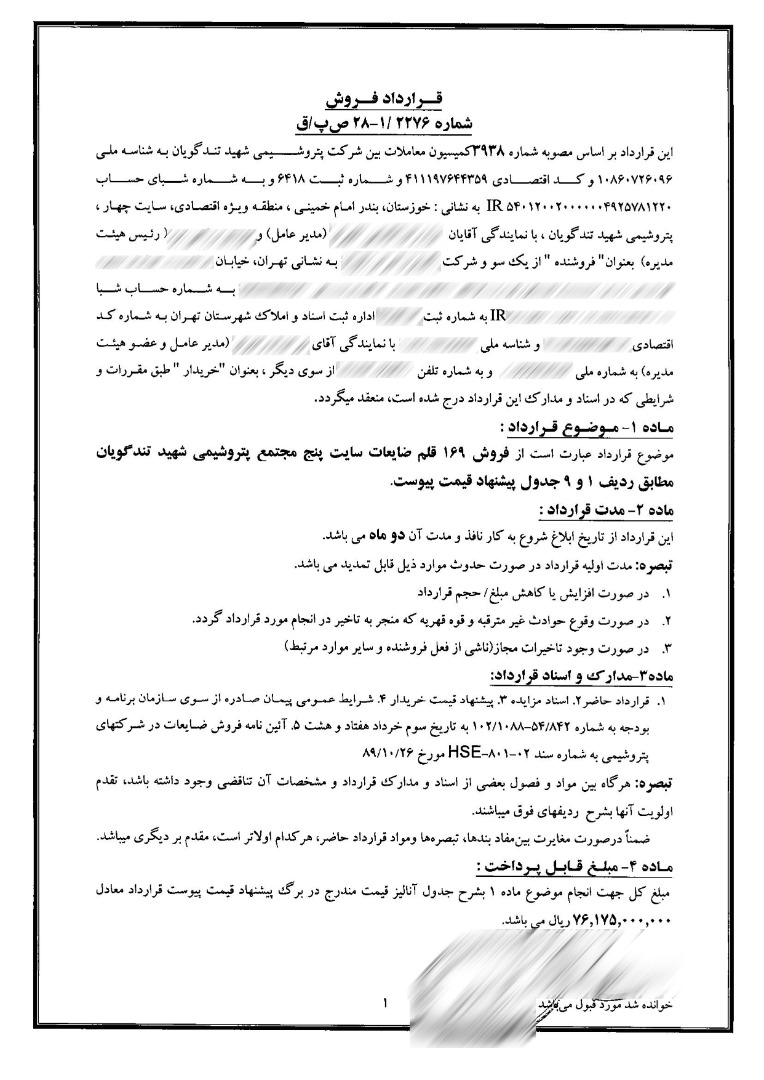 قــرارداد فــروش
شماره ۲۲۷۶ /۱-۲۸ ص‌پ/ق
این قرارداد بر اساس مصوبه شماره ۳۹۳۸کمیسیون معاملات بین شرکت پتروشــیمی شهید تندگویان به شناسه ملی
۱۰۸۶۰۷۲۶۰۹۶ و کــد اقتصــادی ۴۱۱۱۹۷۶۴۴۳۵۹ و شمــاره ثبــت ۶۴۱۸ و بــه شمــاره شــبای حســاب
IR ۵۴۰۱۲۰۰۲۰۰۰۰۰۰۴۹۲۵۷۸۱۲۲۰ به نشانی : خوزستان، بندر امام خمینی ، منطقه ویژه اقتصادی، سایت چهار ،
پتروشیمی شهید تندگویان ، با نمایندگی آقایان (مدیر عامل) و ( رئیس هیئت
مدیره) بعنوان" فروشنده " از یک سو و شرکت به نشانی تهران، خیابان
بــه شمــاره حســاب شــبا
IR به شماره ثبت اداره ثبت اسناد و املاک شهرستان تهران به شماره کد
اقتصادی و شناسه ملی با نمایندگی آقای (مدیر عامل و عضو هیئت
مدیره) به شماره ملی و به شماره تلفن از سوی دیگر ، بعنوان "خریدار " طبق مقررات و
شرایطی که در اسناد و مدارک این قرارداد درج شده است، منعقد میگردد.
ماده ۱- موضوع قرارداد :
موضوع قرارداد عبارت است از فروش ۱۶۹ قلم ضایعات سایت پنج مجتمع پتروشیمی شهید تندگویان
مطابق ردیف ۱ و ۹ جدول پیشنهاد قیمت پیوست.
ماده ۲- مدت قرارداد :
این قرارداد از تاریخ ابلاغ شروع به کار نافذ و مدت آن دو ماه می باشد.
تبصره: مدت اولیه قرارداد در صورت حدوث موارد ذیل قابل تمدید می باشد.
۱. در صورت افزایش یا کاهش مبلغ/ حجم قرارداد
۲. در صورت وقوع حوادث غیر مترقبه و قوه قهریه که منجر به تاخیر در انجام مورد قرارداد گردد.
۳. در صورت وجود تاخیرات مجاز(ناشی از فعل فروشنده و سایر موارد مرتبط)
ماده۳-مدارک و اسناد قرارداد:
۱. قرارداد حاضر۲. اسناد مزایده ۳. پیشنهاد قیمت خریدار ۴. شرایط عمومی پیمان صادره از سوی سازمان برنامه و
بودجه به شماره ۵۴/۸۴۲-۱۰۲/۱۰۸۸ به تاریخ سوم خرداد هفتاد و هشت ۵. آئین نامه فروش ضایعات در شرکتهای
پتروشیمی به شماره سند HSE-۸۰۱-۰۲ مورخ ۸۹/۱۰/۲۶
تبصره: هرگاه بین مواد و فصول بعضی از اسناد و مدارک قرارداد و مشخصات آن تناقضی وجود داشته باشد، تقدم
اولویت آنها بشرح ردیفهای فوق میباشند.
ضمناً درصورت مغایرت بین‌مفاد بندها، تبصره‌ها ومواد قرارداد حاضر، هرکدام اولاتر است، مقدم بر دیگری میباشد.
ماده ۴- مبلغ قابل پرداخت :
مبلغ کل جهت انجام موضوع ماده ۱ بشرح جدول آنالیز قیمت مندرج در برگ پیشنهاد قیمت پیوست قرارداد معادل
۷۶,۱۷۵,۰۰۰,۰۰۰ ریال می باشد.
خوانده شد مورد قبول می‌باشد
۱